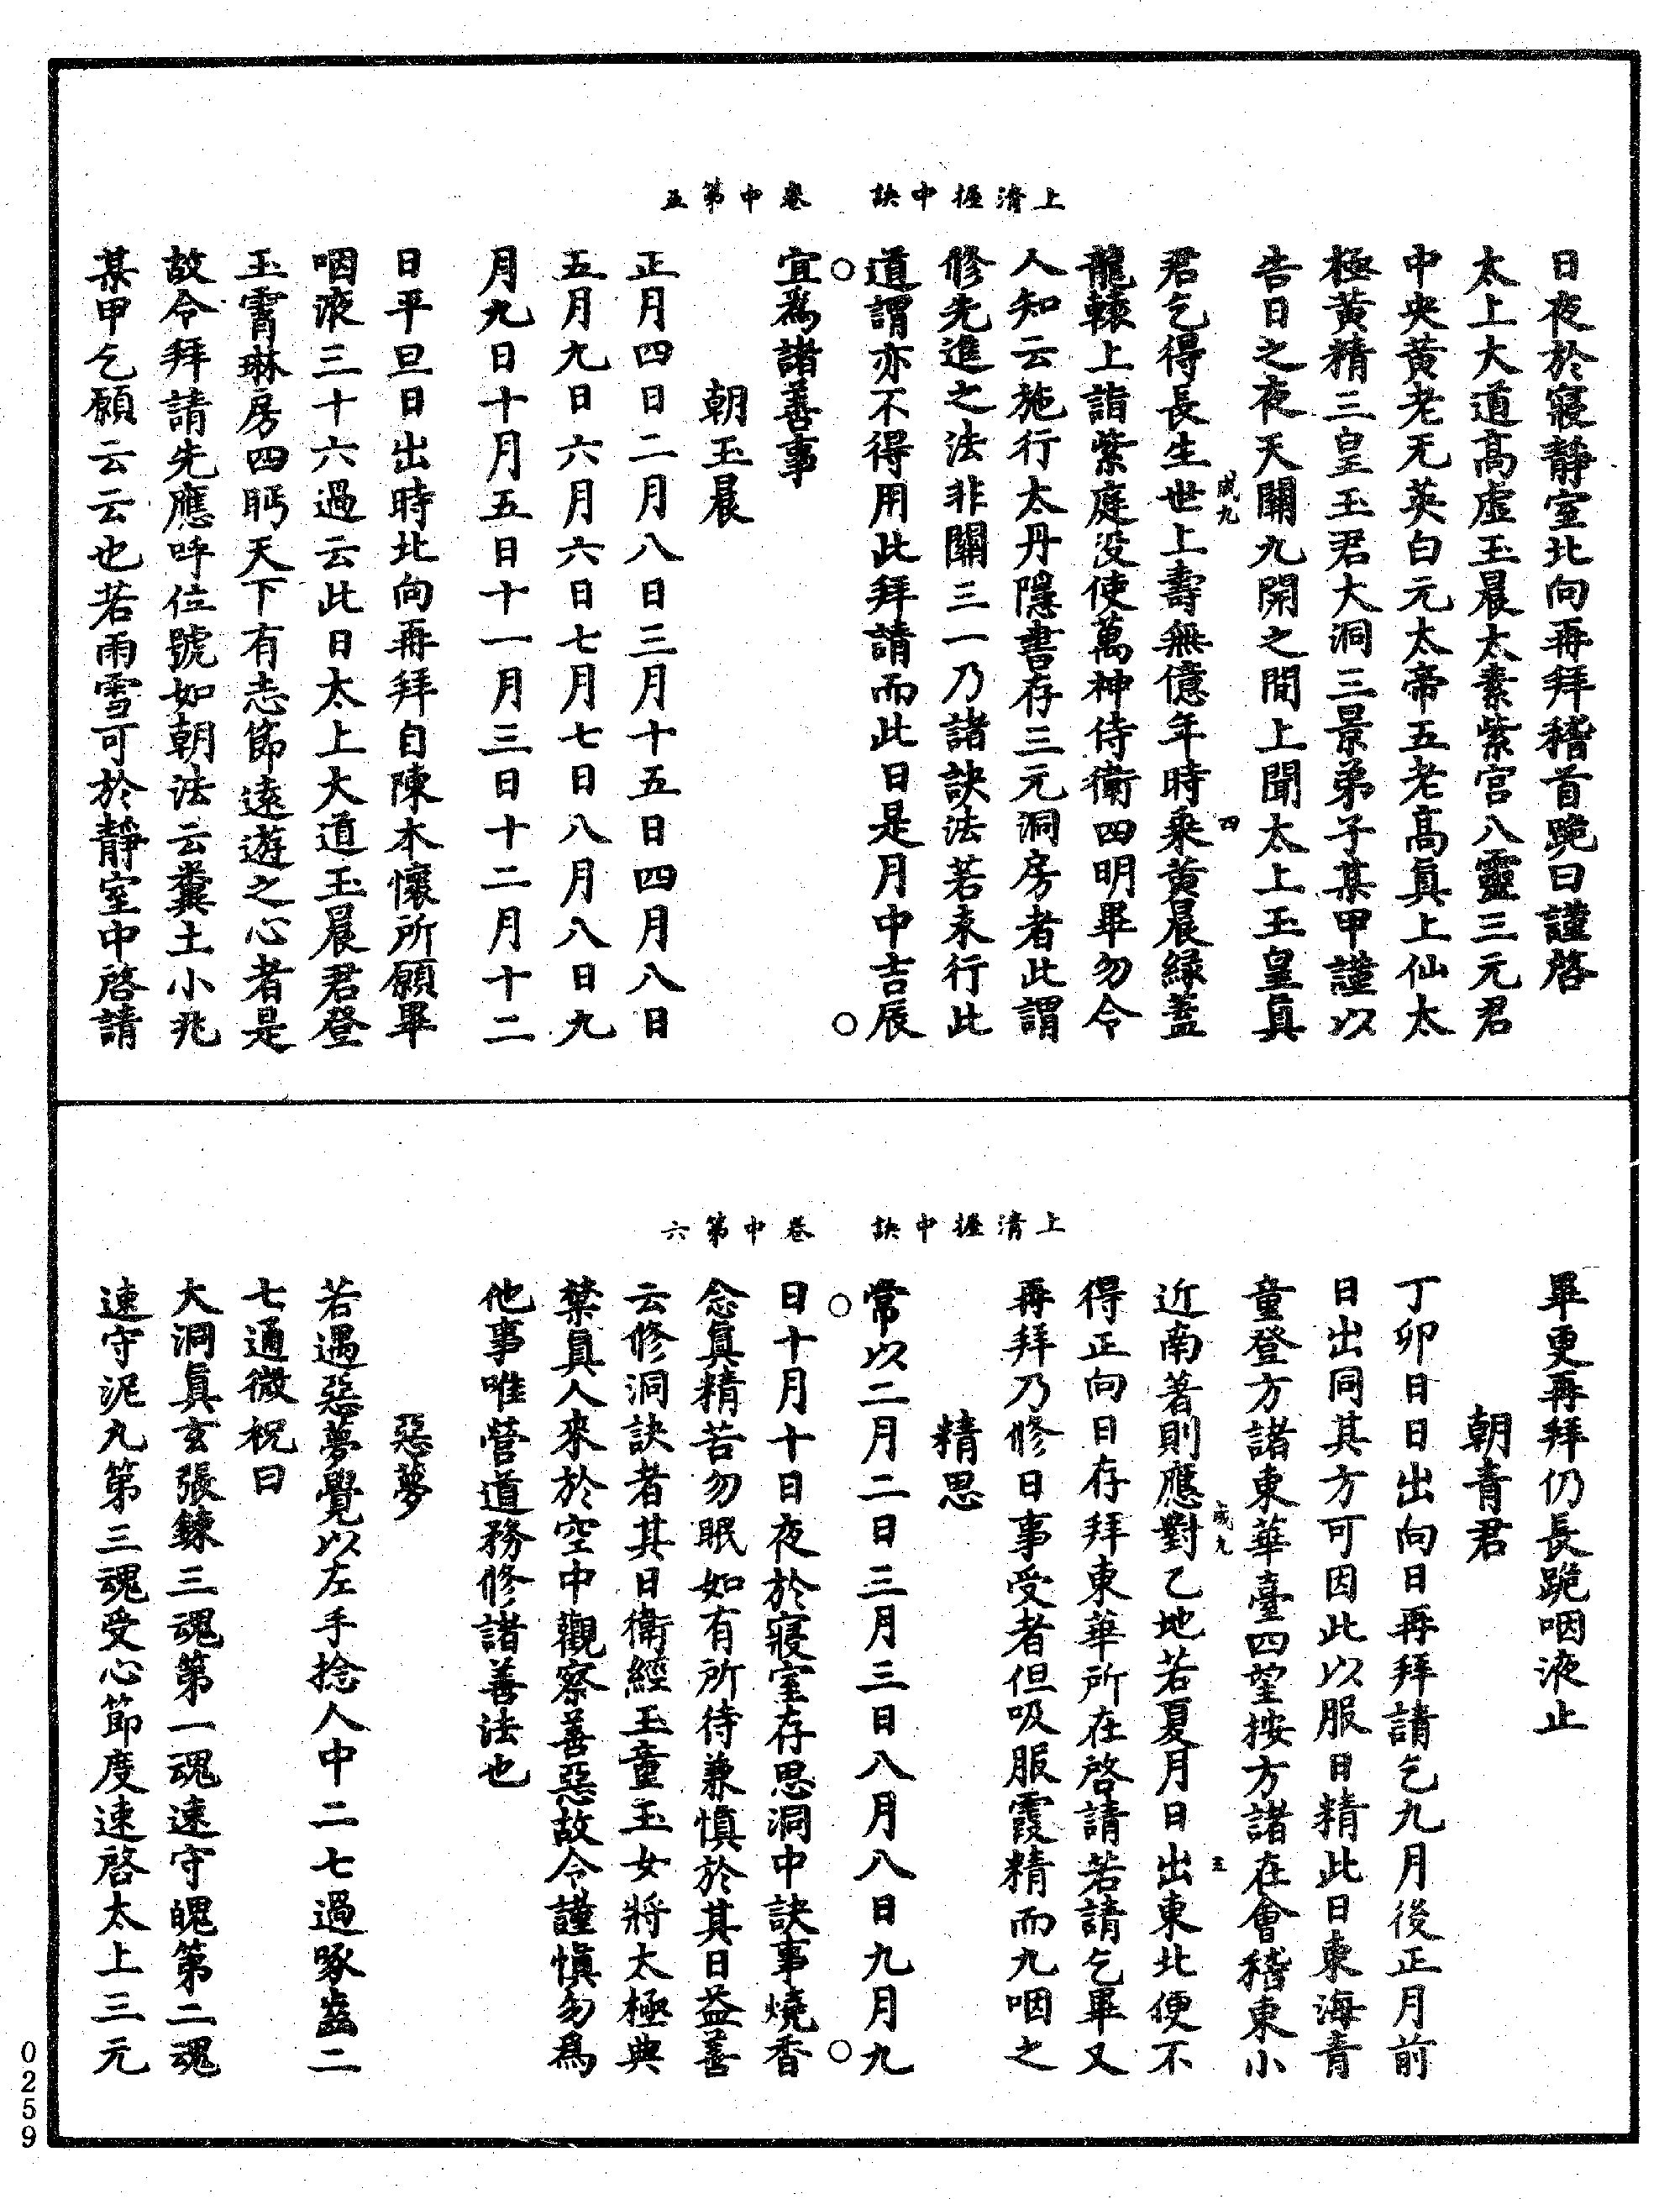 上清握中訣　卷中第五
日夜於寢靜室北向再拜稽首跪曰謹啓
太上大道高虛玉晨太素紫宮八靈三元君
中央黃老无英白元太帝五老高眞上仙太
極黃精三皇玉君大洞三景弟子某甲謹以
告日之夜天關九開之間上聞太上玉皇眞
君乞得長生世上壽無億年時乘黃晨綠蓋
咸九
四
龍轅上詣紫庭没使萬神侍衛四明畢勿令
人知云施行太丹隱書存三元洞房者此謂
修先進之法非關三一乃諸訣法若未行此
道謂亦不得用此拜請而此日是月中吉辰
宜爲諸善事
朝玉晨
正月四日二月八日三月十五日四月八日
五月九日六月六日七月七日八月八日九
月九日十月五日十一月三日十二月十二
日平旦日出時北向再拜自陳本懷所願畢
咽液三十六過云此日太上大道玉晨君登
玉霄琳房四眄天下有志節遠遊之心者是
故令拜請先應呼位號如朝法云糞土小兆
某甲乞願云云也若雨雪可於靜室中啓請
上清握中訣　卷中第六
畢更再拜仍長跪咽液止
朝青君
丁卯日日出向日再拜請乞九月後正月前
日出同其方可因此以服日精此日東海青
童登方諸東華臺四望按方諸在會稽東小
近南著則應對乙地若夏月日出東北便不
咸九
五
得正向日存拜東華所在啓請若請乞畢又
再拜乃修日事受者但吸服霞精而九咽之
精思
常以二月二日三月三日八月八日九月九
日十月十日夜於寢室存思洞中訣事燒香
念眞精苦勿眠如有所待兼愼於其日益善
云修洞訣者其日衛經玉童玉女將太極典
禁眞人來於空中觀察善惡故令謹愼勿爲
他事唯營道務修諸善法也
惡夢
若遇惡夢覺以左手捻人中二七過啄齒二
七通微祝曰
大洞眞玄張鍊三魂第一魂速守魄第二魂
速守泥丸第三魂受心節度速啓太上三元
0259